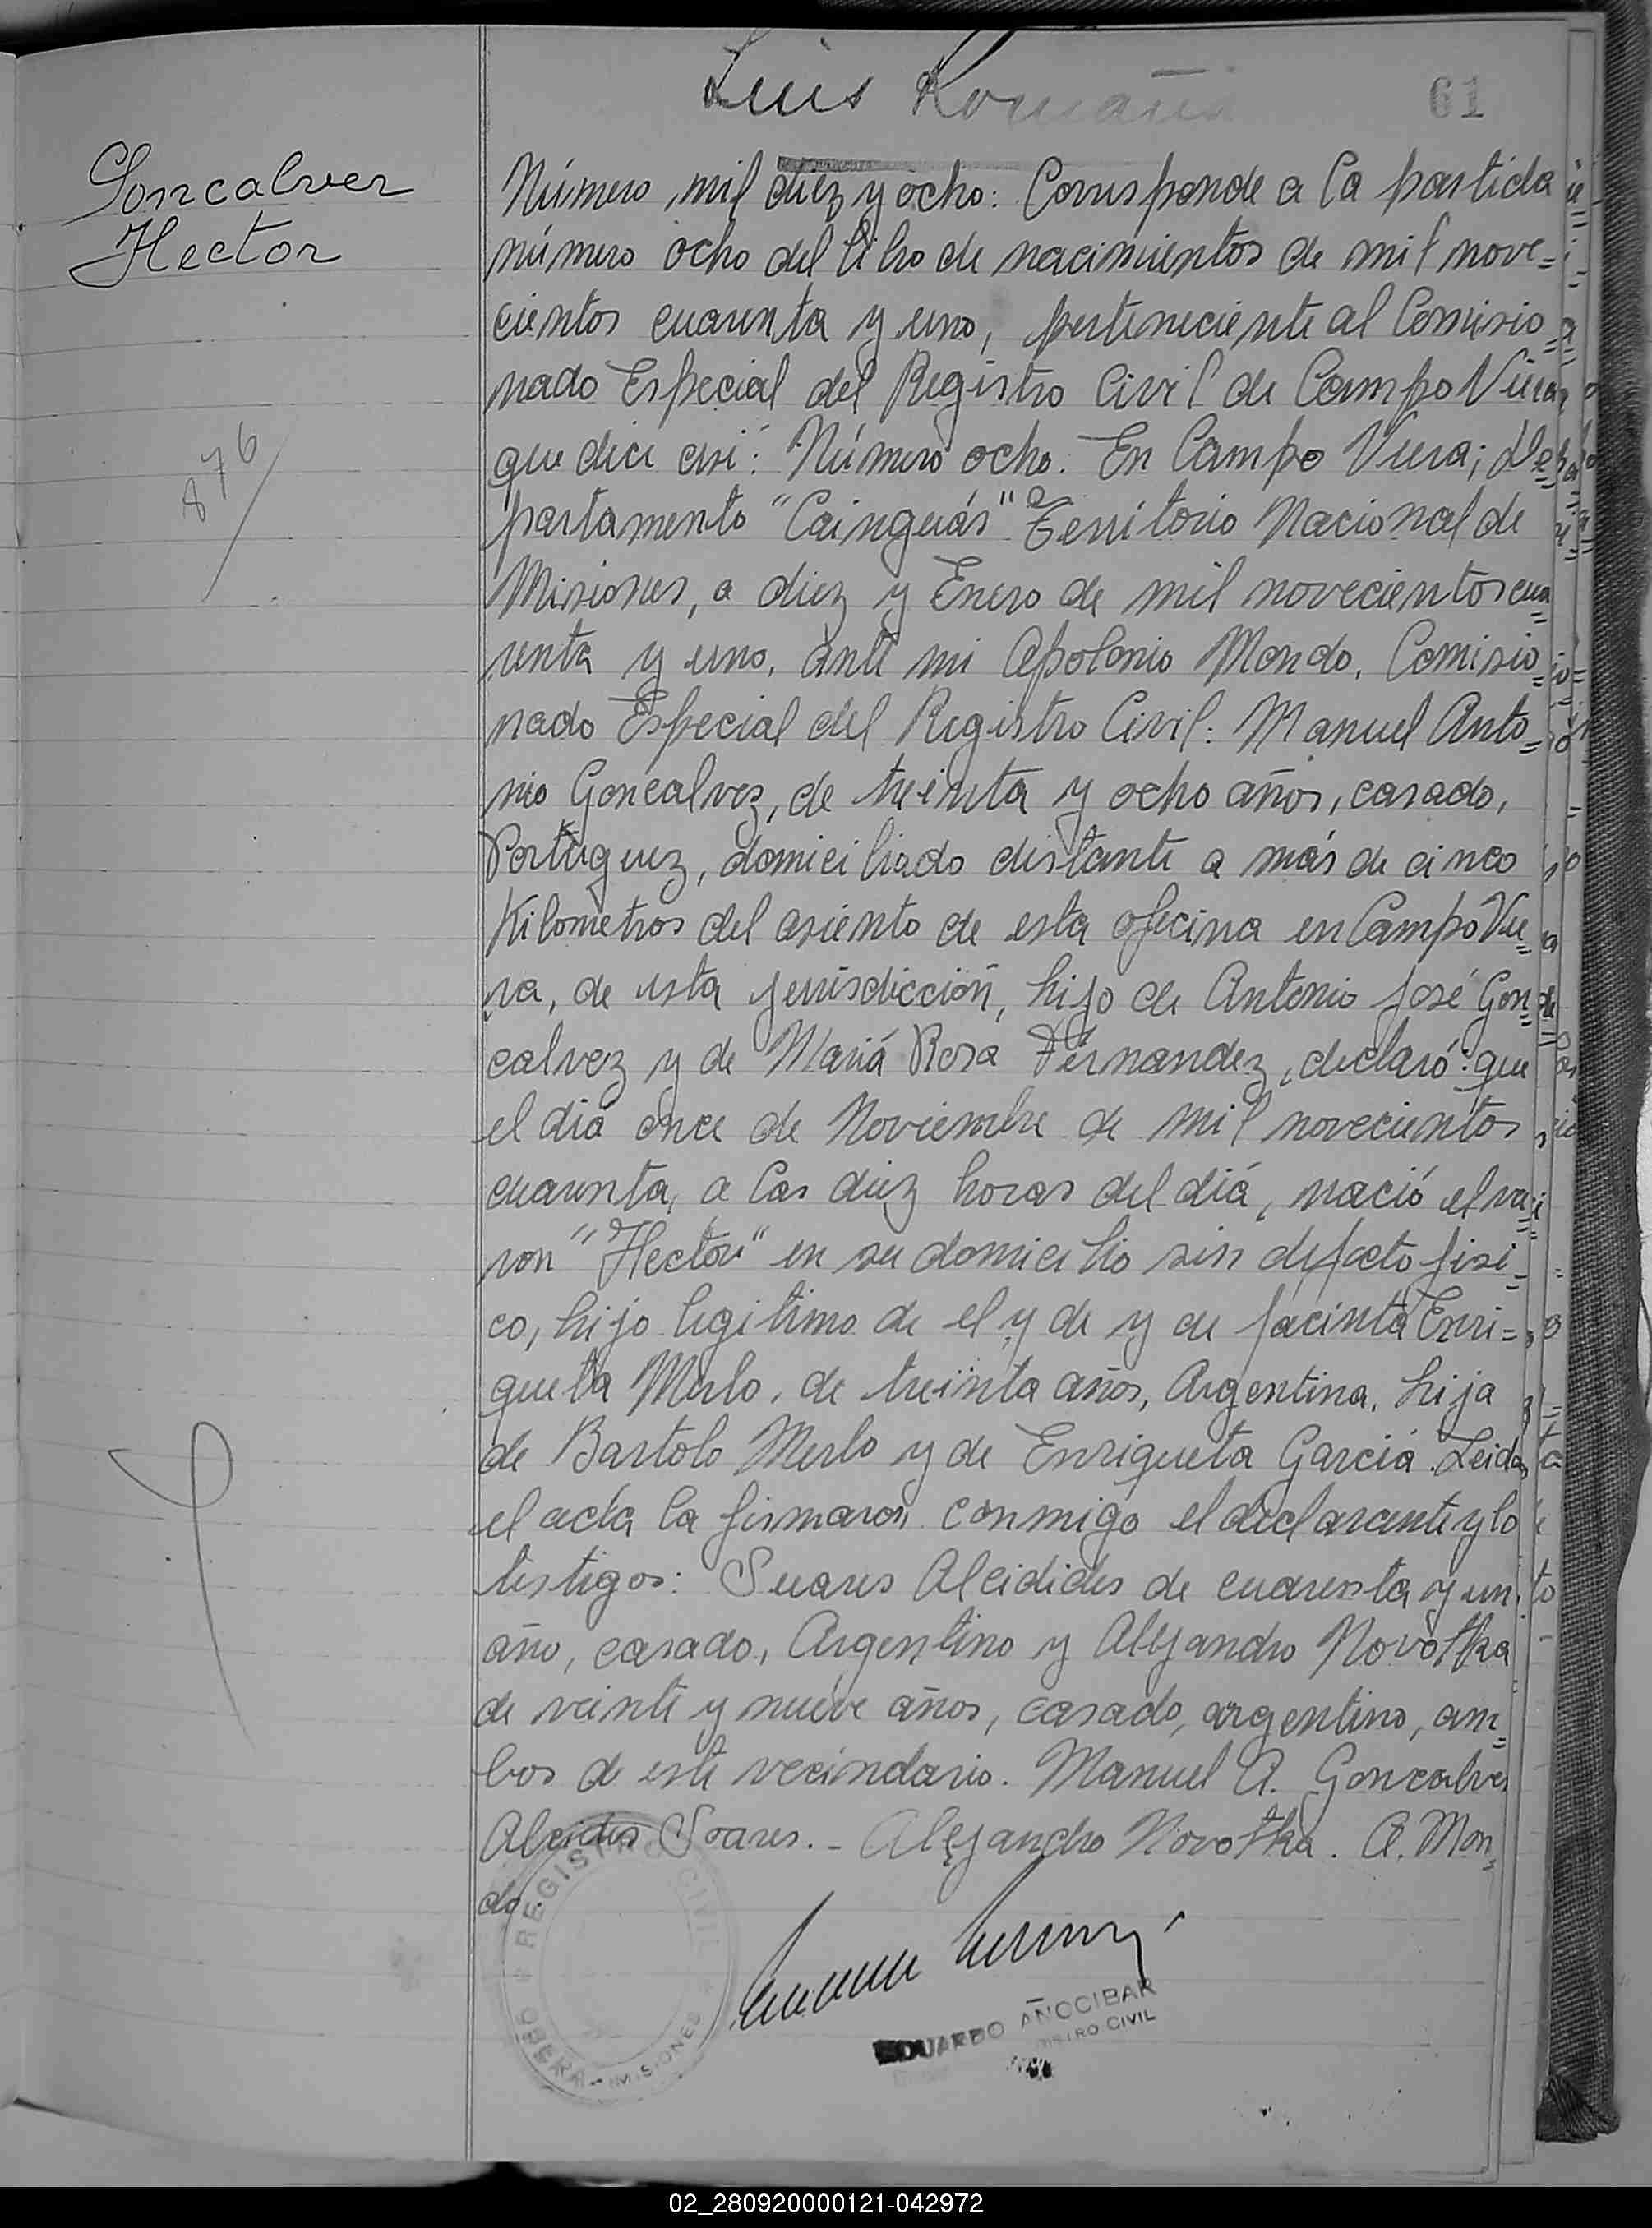 Luis Romaña
61
Goncalvez
Hector
876
Número, mil diez y ocho: Corresponde a la partida
número ocho del libro de nacimientos de mil nove=
cientos cuarenta y uno, perteneciente al Comisio=
nado Especial del Registro Civil de Campo Viera
que dice asi: Número ocho. En Campo Viera; De=
partamento "Cainguás" Territorio Nacional de
Misiones, a diez y Enero de mil novecientos cua=
renta y uno, ante mi Apolonio Mondo, Comisio=
nado Especial del Registro Civil: Manuel Anto=
nio Goncalvez, de treinta y ocho años, casado,
Portuguez, domiciliado distante a más de cinco
Kilometros del asiento de esta oficina en Campo Vie=
ra, de esta jurisdicción, hijo de Antonio José Gon=
calvez y de Mariá Rosa Fernandez, declaró: que
el diá once de Noviembre de mil novecientos
cuarenta, a las diez horas del diá, nació el va=
ron "Hector" en su domicilio sin defecto fisi=
co, hijo legitimo de el y de y de Jacinta Enri=
queta Merlo, de treinta años, Argentina, hija
de Bartolo Merlo y de Enriqueta Garciá. Leida
el acta la firmaron conmigo el declarante y lo
testigos: Suares Alcidides de cuarenta y un
año, casado, Argentino y Alejandro Novotka
de veinte y nueve años, casado, argentino, am=
bos de este vecindario. Manuel A. Goncalves
Alcides Soares. - Alejandro Novotka. A. Mon=
do.
REGISTRO CIVIL
OBERA - MISIONES
EDUARDO AÑOCIBAR
REGISTRO CIVIL
02_280920000121-042972